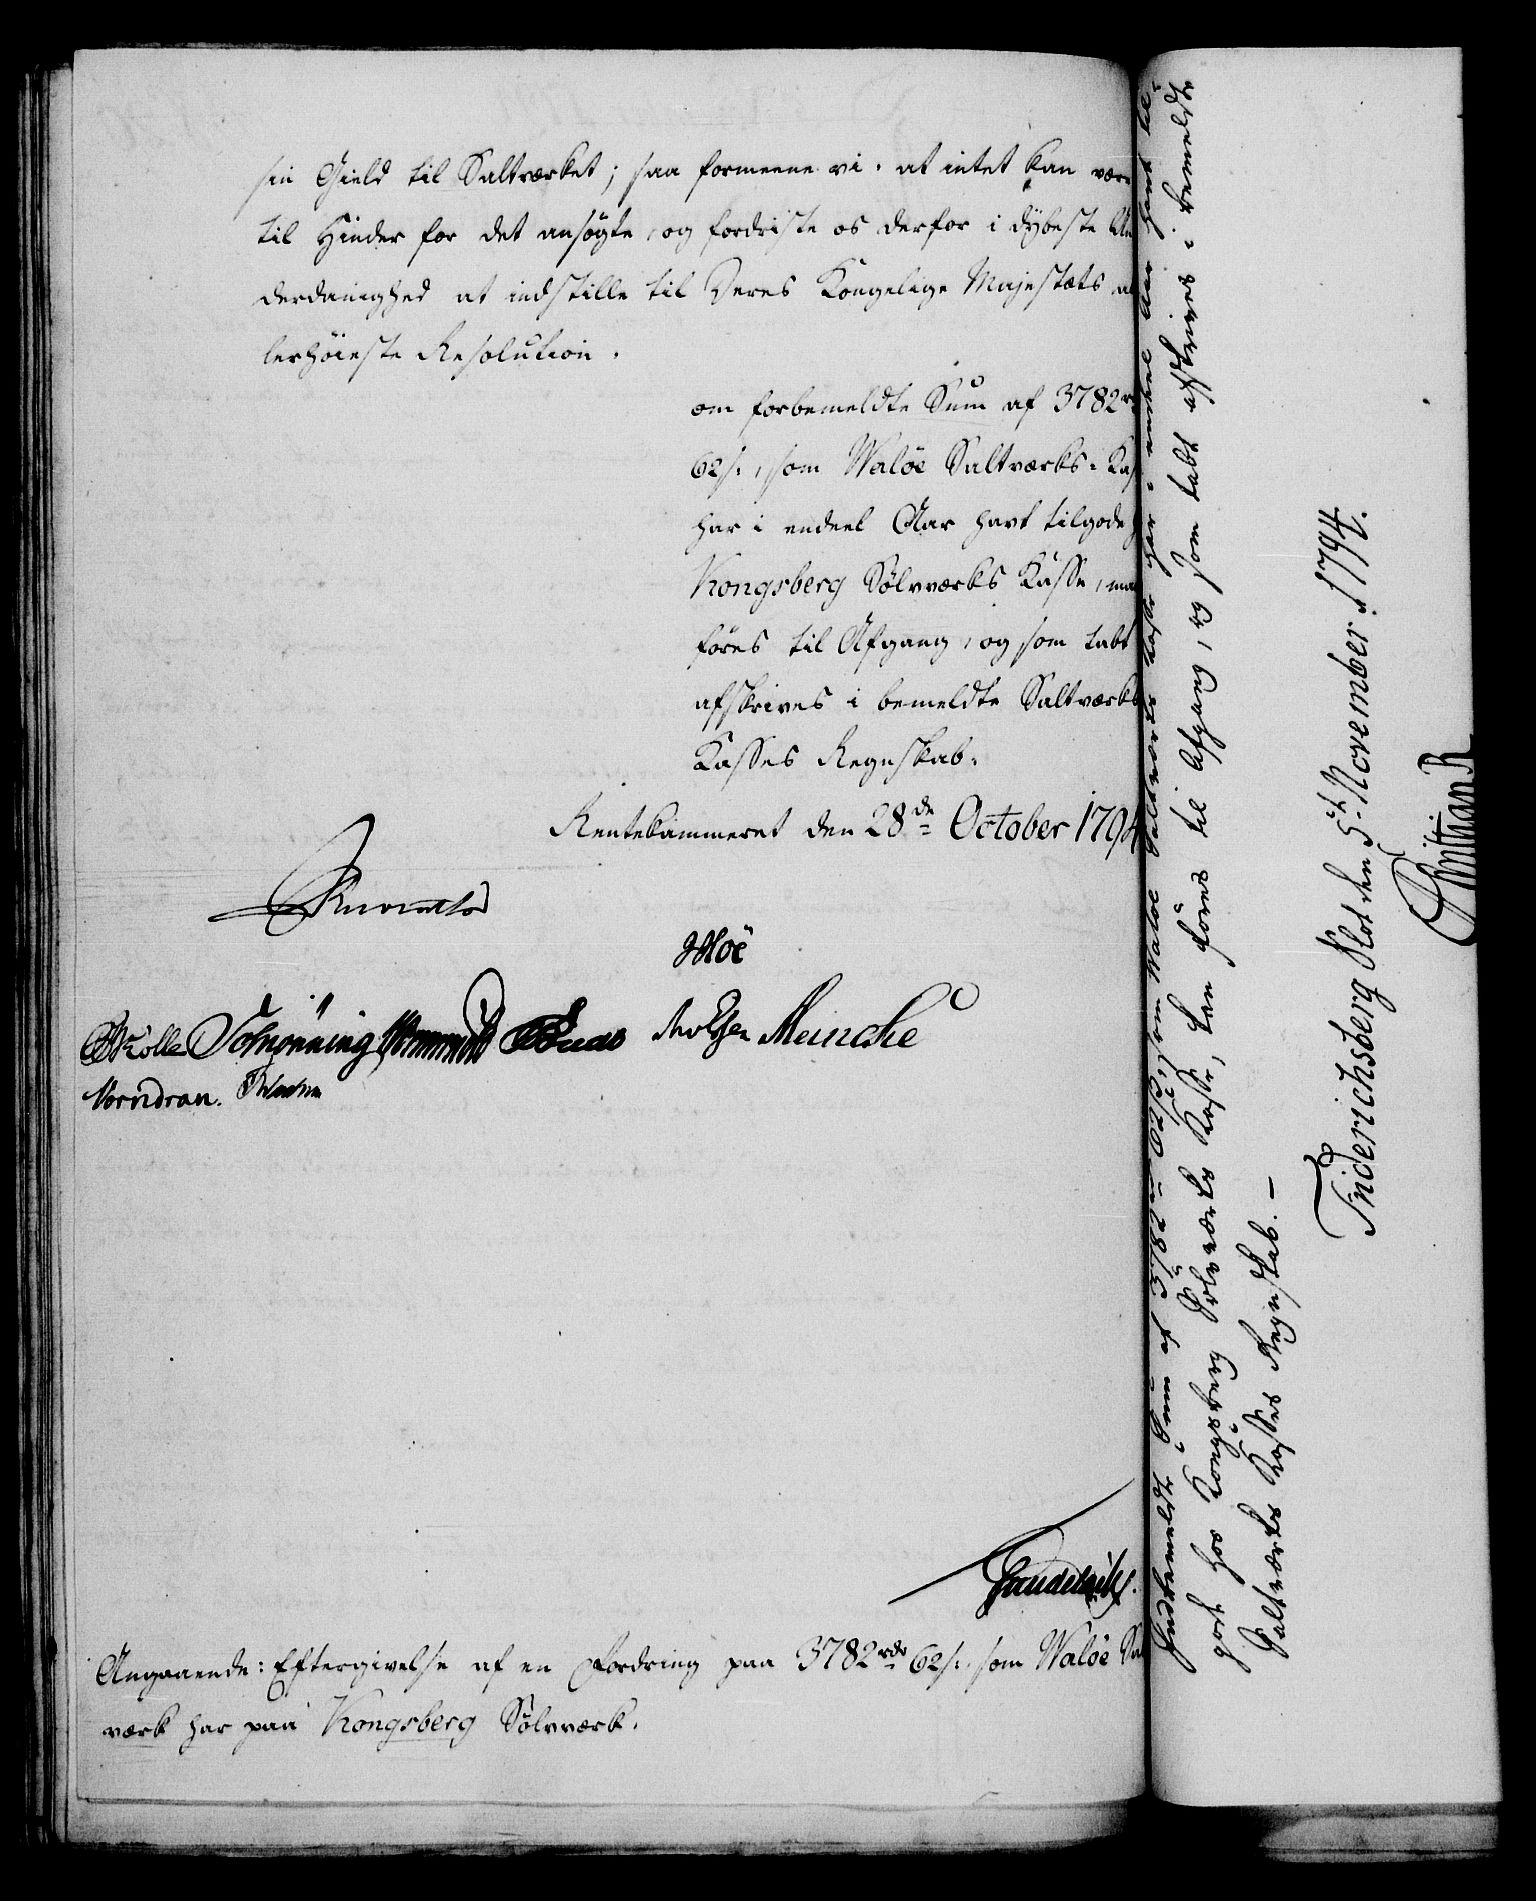 sin Gield til Saltværket; saa formeene vi, at intet kan være
til Hinder for det ansögte, og fordriste os derfor i dybeste Un
derdanighed at indstille til Deres Kongelige Majestæts al
lerhöieste Resolution.
om forbemeldte Sum af 3782 rd
62 s., som Waløe Saltværks-Kas
har i endeel Aar havt tilgode h
Kongsberg Sølvværks Kasse, maa
föres til Afgang, og som tabt
afskrives i bemeldte Saltværks
Kasses Regnskab.
Rentekammeret den 28de October 1794
Moë
Schiönning
Meincke
Vorndran.
Angaaende: Eftergivelse af en Fordring paa 3782 rdr 62 s. som Waløe Sal
værk har paa Kongsberg Sölvværk.
Indbemeldte Sum af 3782 rd 62 s., som Waløe Saltværks Kasse har i endeel Aar havt til
gode hos Kongsberg Sölvværks Kasse, kan föres til Afgang, og som tabt afskrives i bemeldte
Saltværks Kasses Regnskab. –
Friderichsberg Slot den 5te November 1794.
Christian R